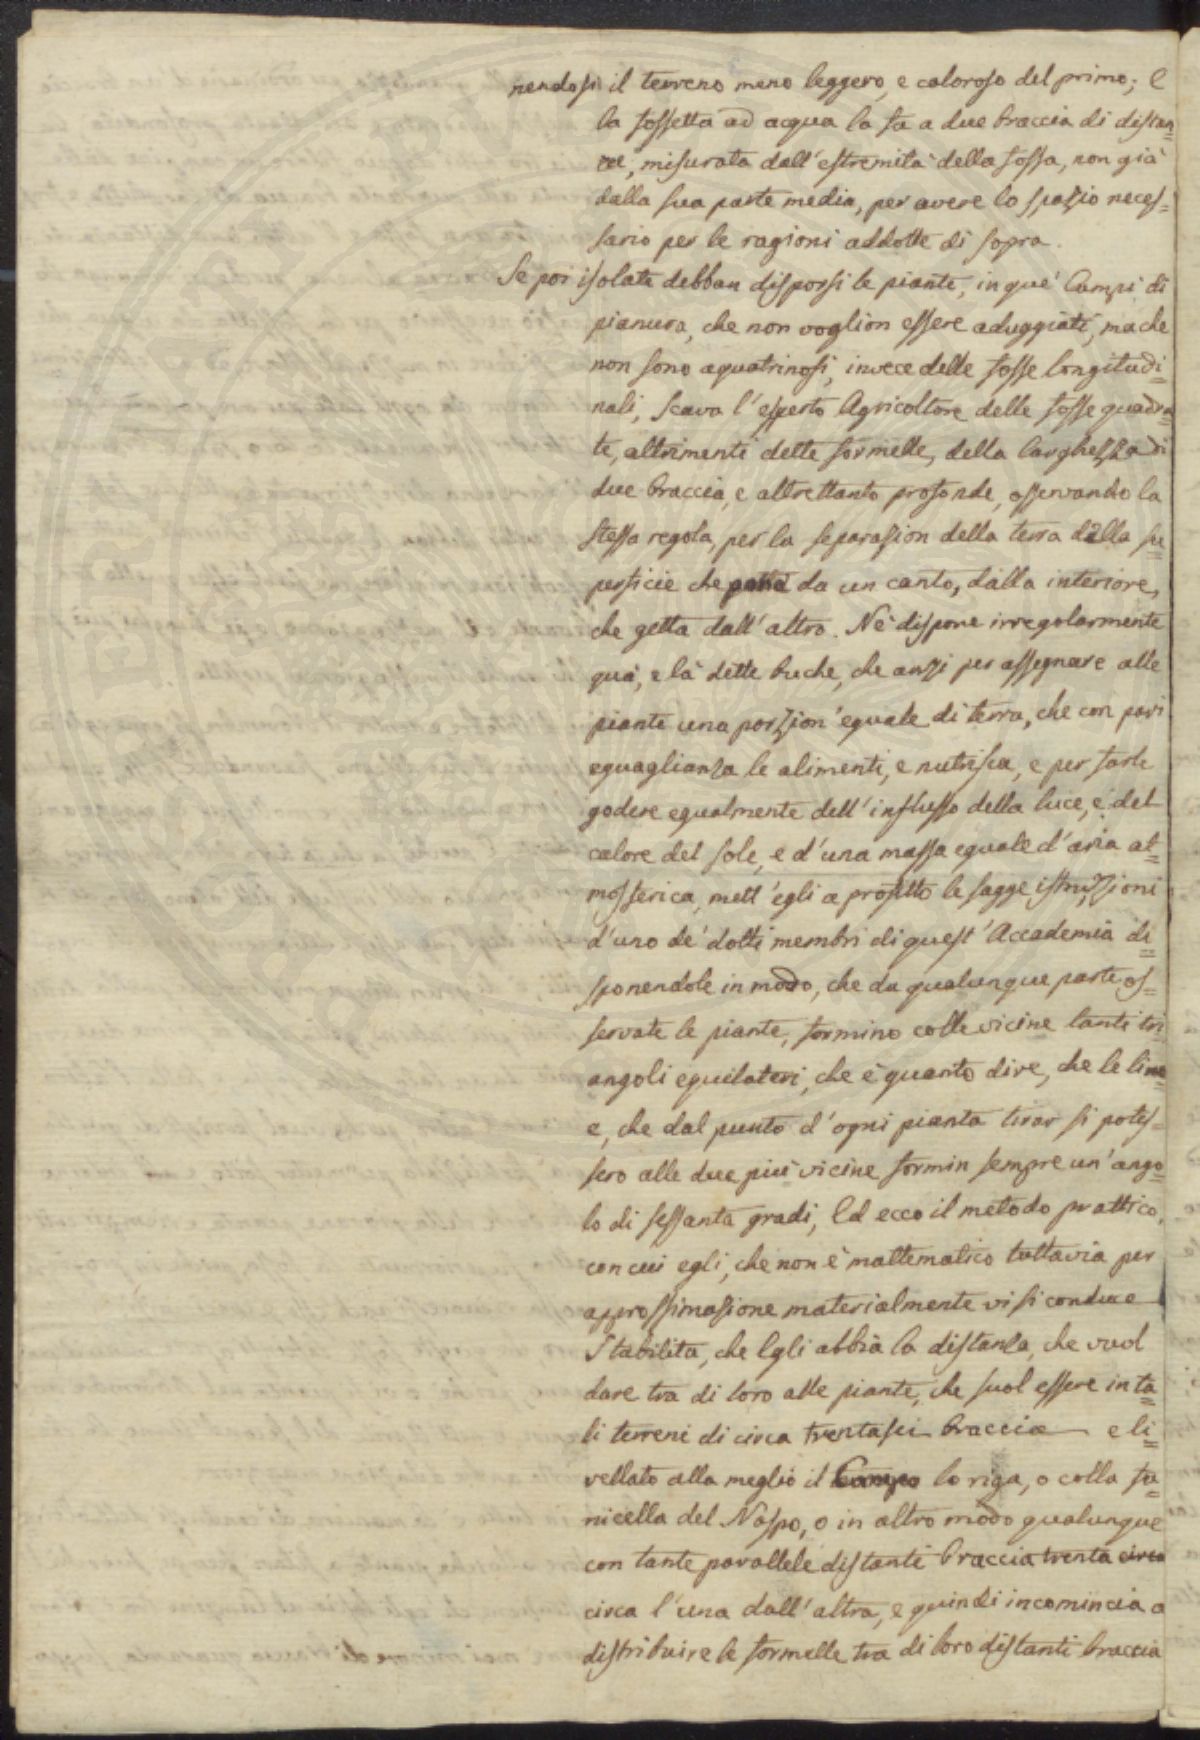 nendosi il terreno meno leggero, e caloroso del primo; E
la fossetta ad acqua la fa a due braccia di distan=
ze, misurata dall'estremità della fossa, non già
dalla sua parte media, per avere lo spazio neces=
sario per le ragioni addotte di sopra.
Se poi isolate debban disporsi le piante, in que' Campi di
pianura, che non voglion essere aduggiati, ma che
non sono aquatrinosi, invece delle fosse longitudi=
nali, scava l'esperto Agricoltore delle fosse quadra=
te, altrimenti dette formelle, della larghezza di
due braccia, e altrettanto profonde, osservando la
stessa regola, per la separazion della terra dalla su=
perficie che da un canto, dalla interiore,
che getta dall'altro. Nè dispone irregolarmente
quà, e là dette buche, che anzi per assegnare alle
piante una porzion' eguale di terra, che con pari
eguaglianza le alimenti, e nutrisca, e per farle
godere egualmente dell'influsso della luce, e del
calore del sole, e d'una massa eguale d'aria at=
mosferica, mett'egli a profitto le sagge istruzioni
d'uno de' dotti membri di quest'Accademia di=
sponendole in modo, che da qualunque parte os=
servate le piante, formino colle vicine tanti tri
angoli equilateri, che è quanto dire, che le line=
e, che dal punto d'ogni pianta tirar si potes=
sero alle due più vicine formin sempre un'ango=
lo di sessanta gradi, Ed ecco il metodo prattico,
con cui egli, che non è mattematico tuttavia per
approssimazione materialmente vi si conduce
Stabilita, che Egli abbia la distanza, che vuol
dare tra di loro alle piante, che suol essere in ta=
li terreni di circa trentasei braccia e li=
vellato alla meglio il Campo lo riga, o colla fu=
nicella del Naspo, o in altro modo qualunque
con tante parallele distanti braccia trenta circa
circa l'una dall'altra, e quindi incomincia a
distribuire le formelle tra di loro distanti braccia